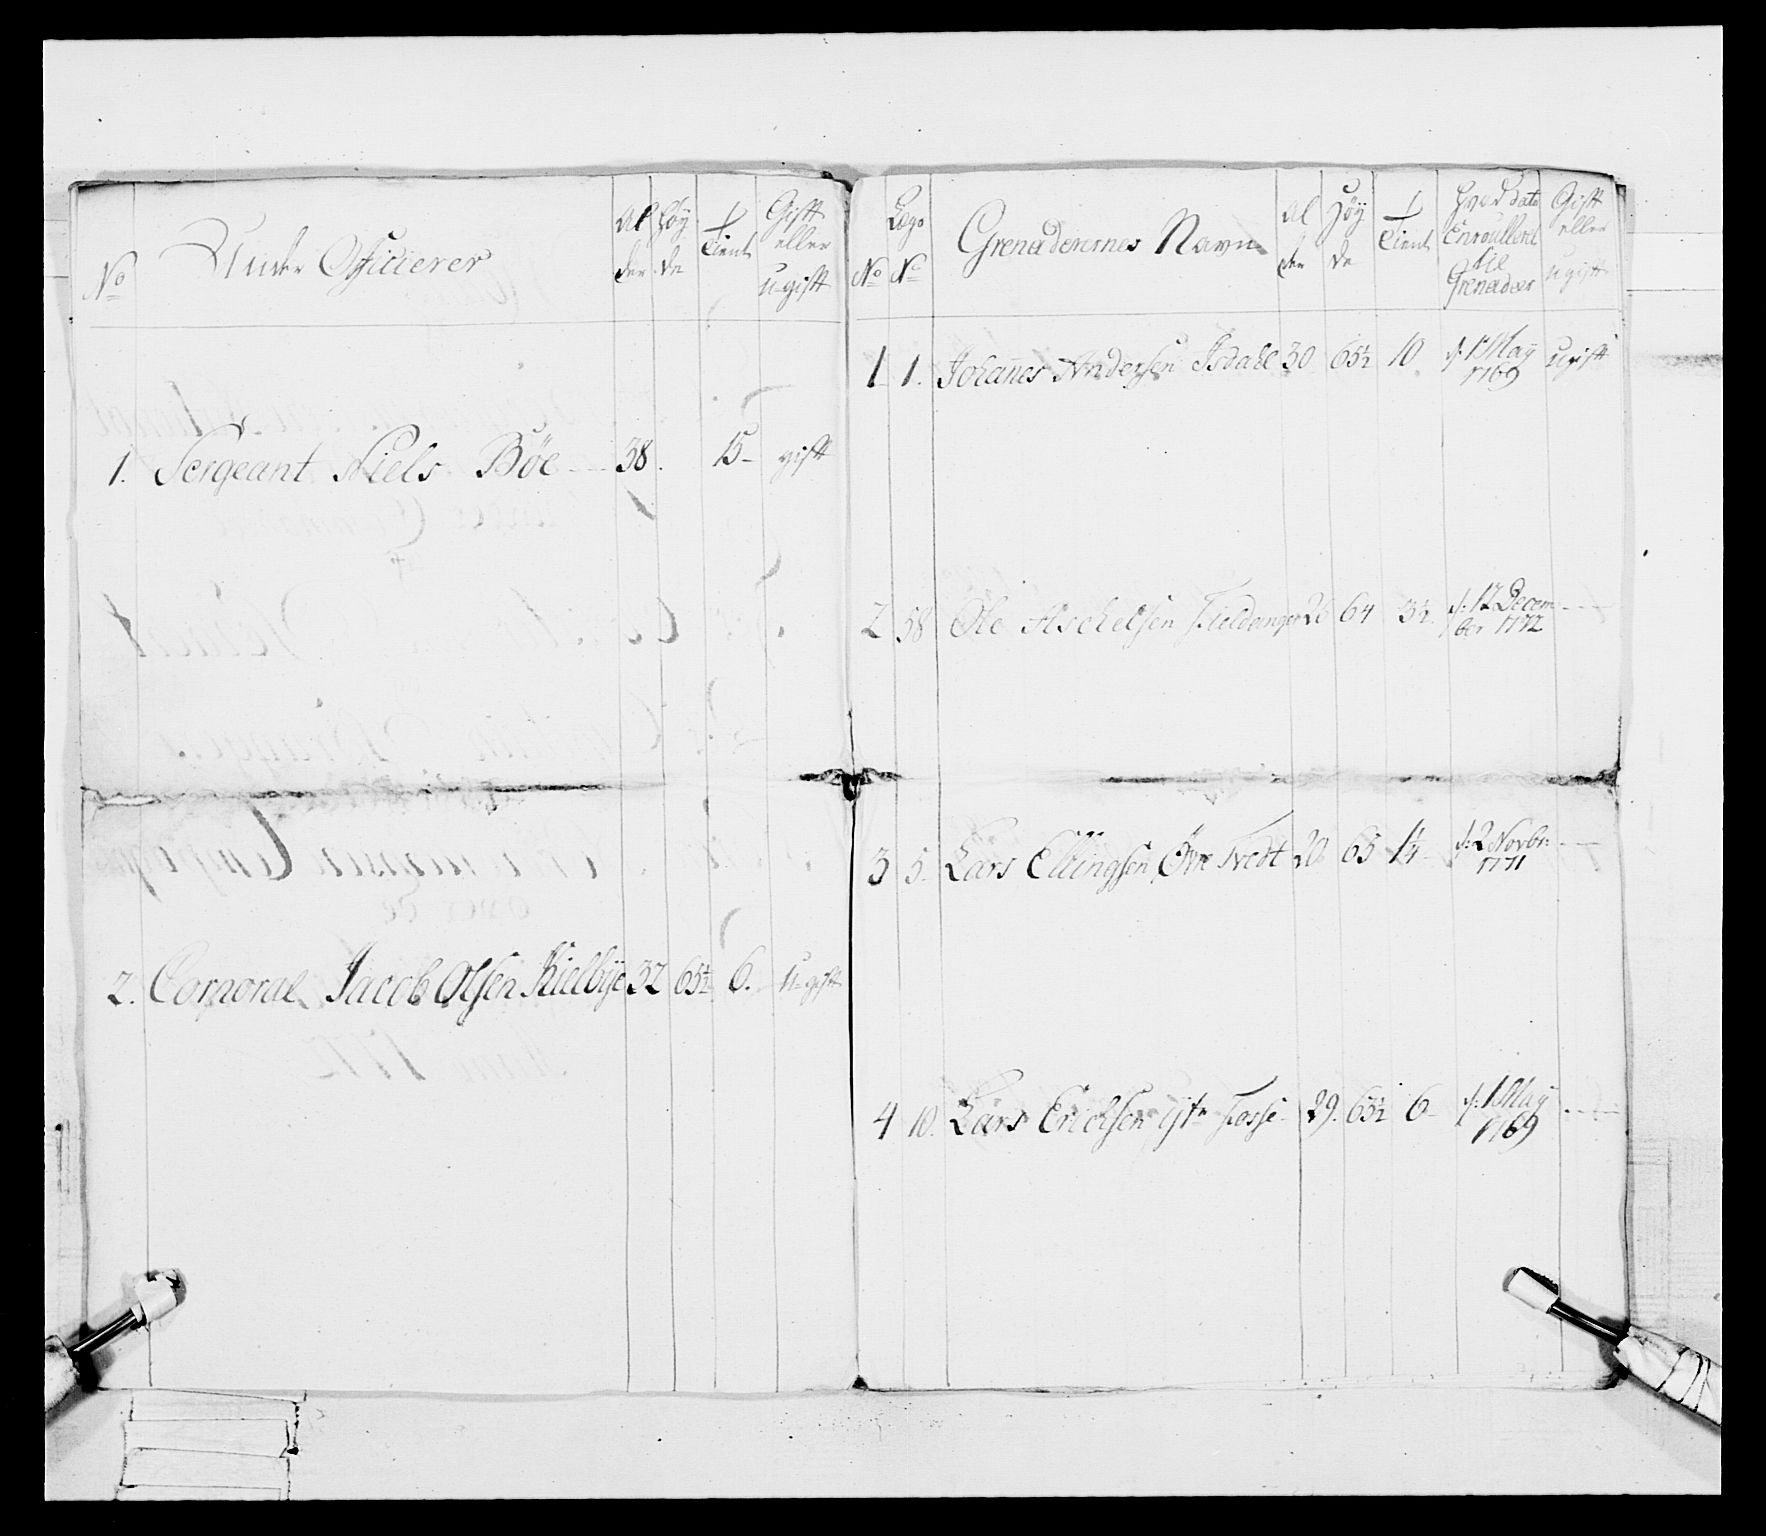 No
Under Officierer
Al
der
Høy
de
Tient
Gift
eller
ugift
1. Sergeant Niels Böe 38. 15 gift
2. Corporal Jacob Olsen Kielbÿe 32 65½ 6. u-gift
No
Lægs
No
Grenaderernes Navn
Al
der
Høy
de
Tient
Hvad dato
Enroullert
til
Grenader
Gift
eller
ugift
1 1. Johannes Andersen Isdahl 30 65½ 10 d: 1 Maÿ
1769
ugift
2 58 Ole Aschelsen Fieldanger 26 64 3½ d: 12 Decem
ber 1772
3 5. Lars Ellingsen Øvre Tvedt 20 65 1¼ d: 2 Novbr:
1771
4 10. Lars Erichsen ytr Fosse 29. 63½ 6 d: 1 Maÿ
1769